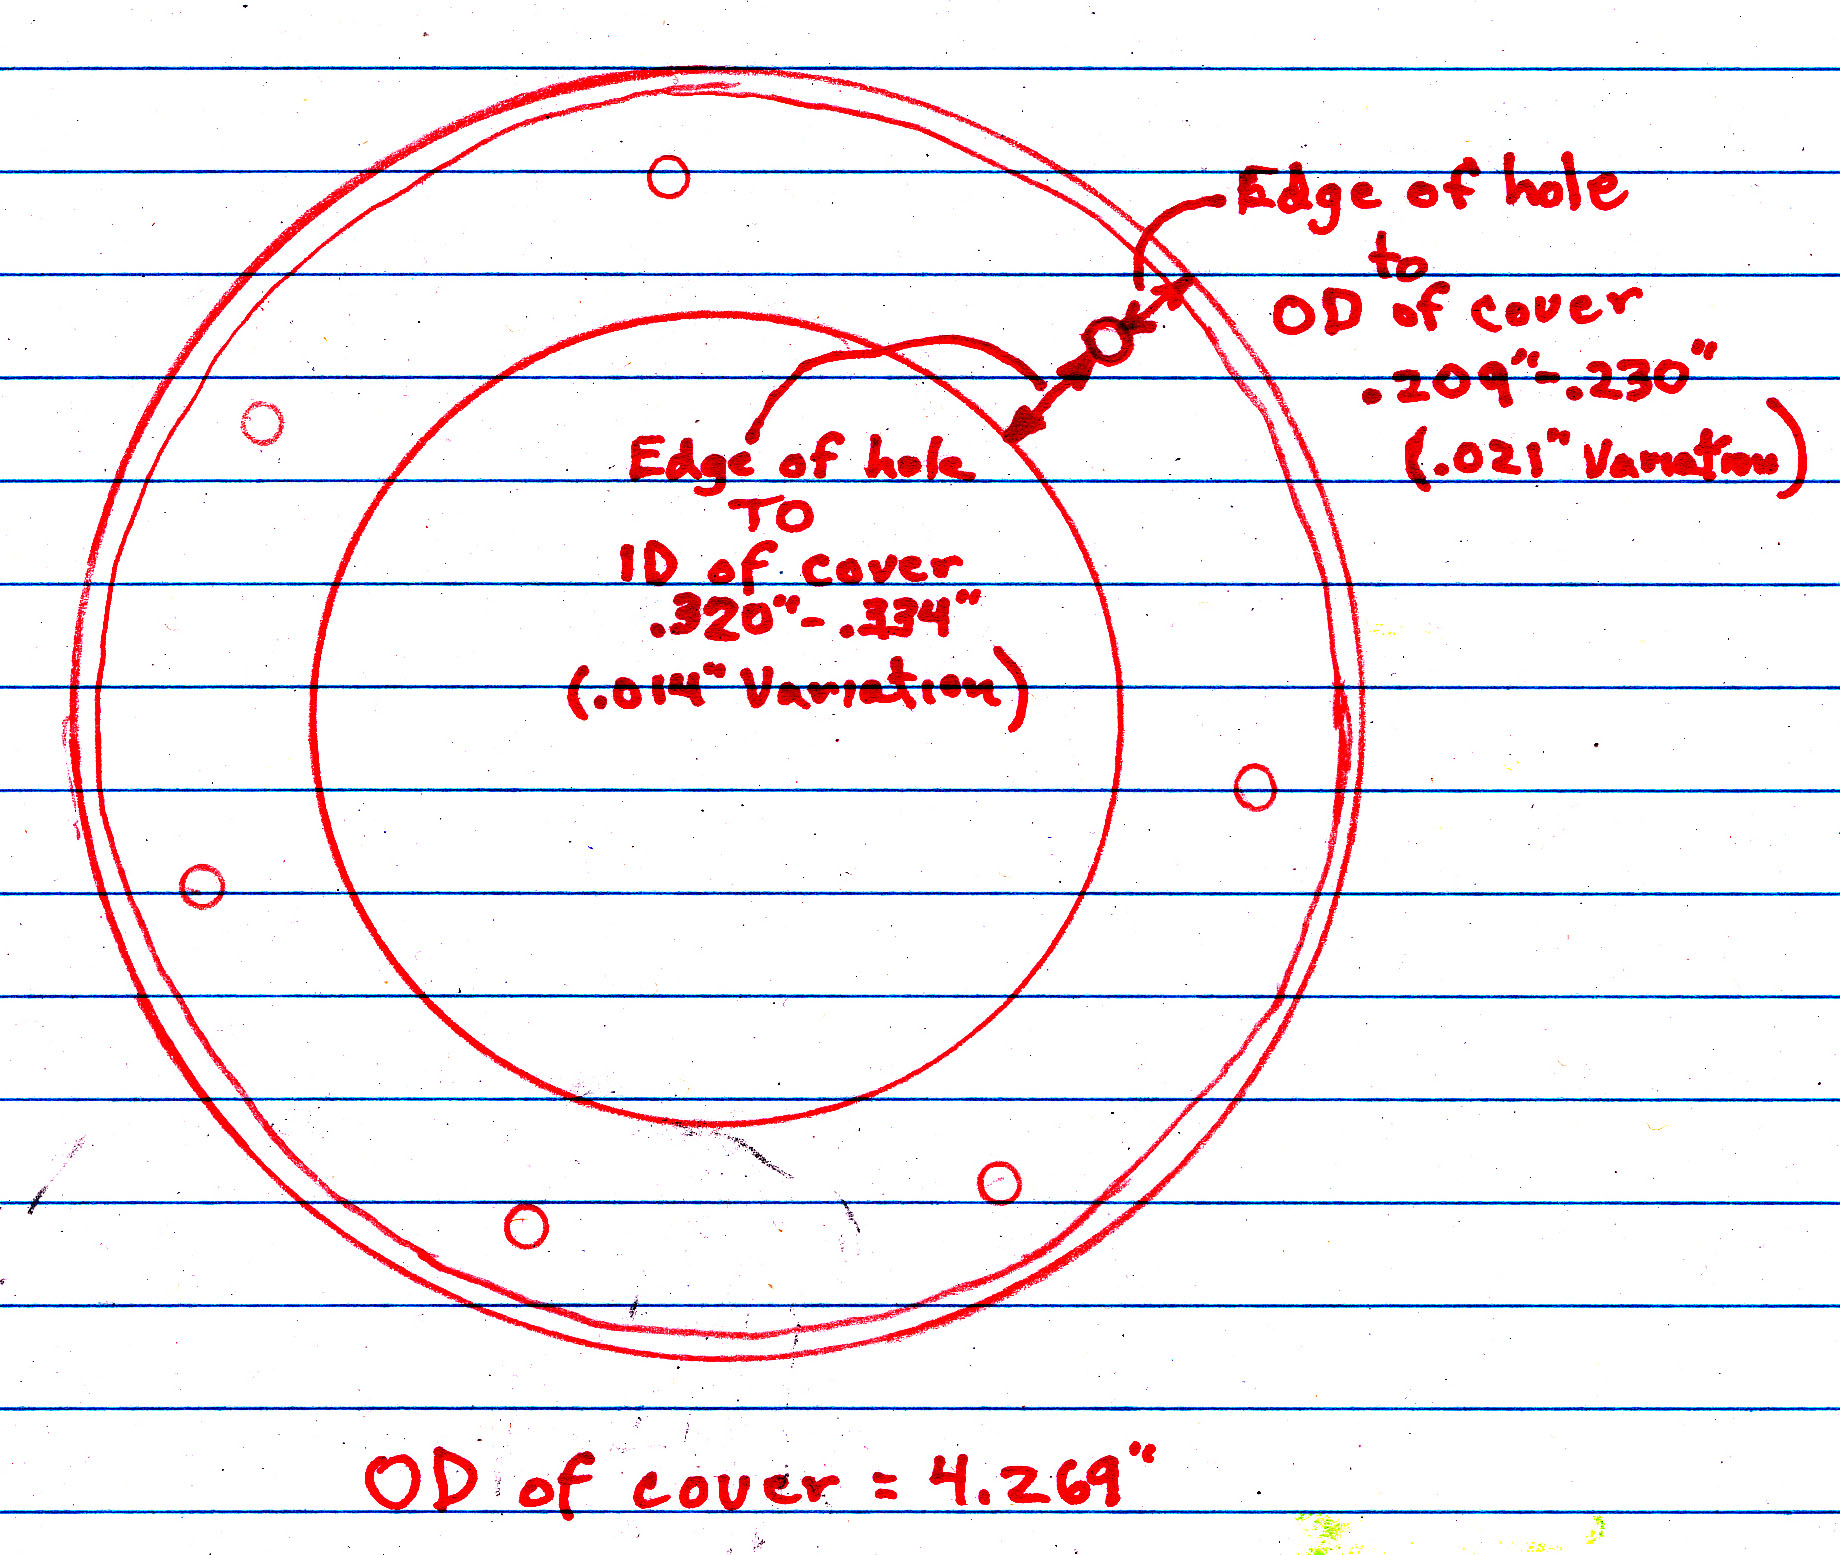 Edge of hole
to
OD of cover
.209"-.230"
(.021" Variation)
Edge of hole
TO
ID of cover
.320"-.334"
(.014" Variation)
OD of cover = 4.269"